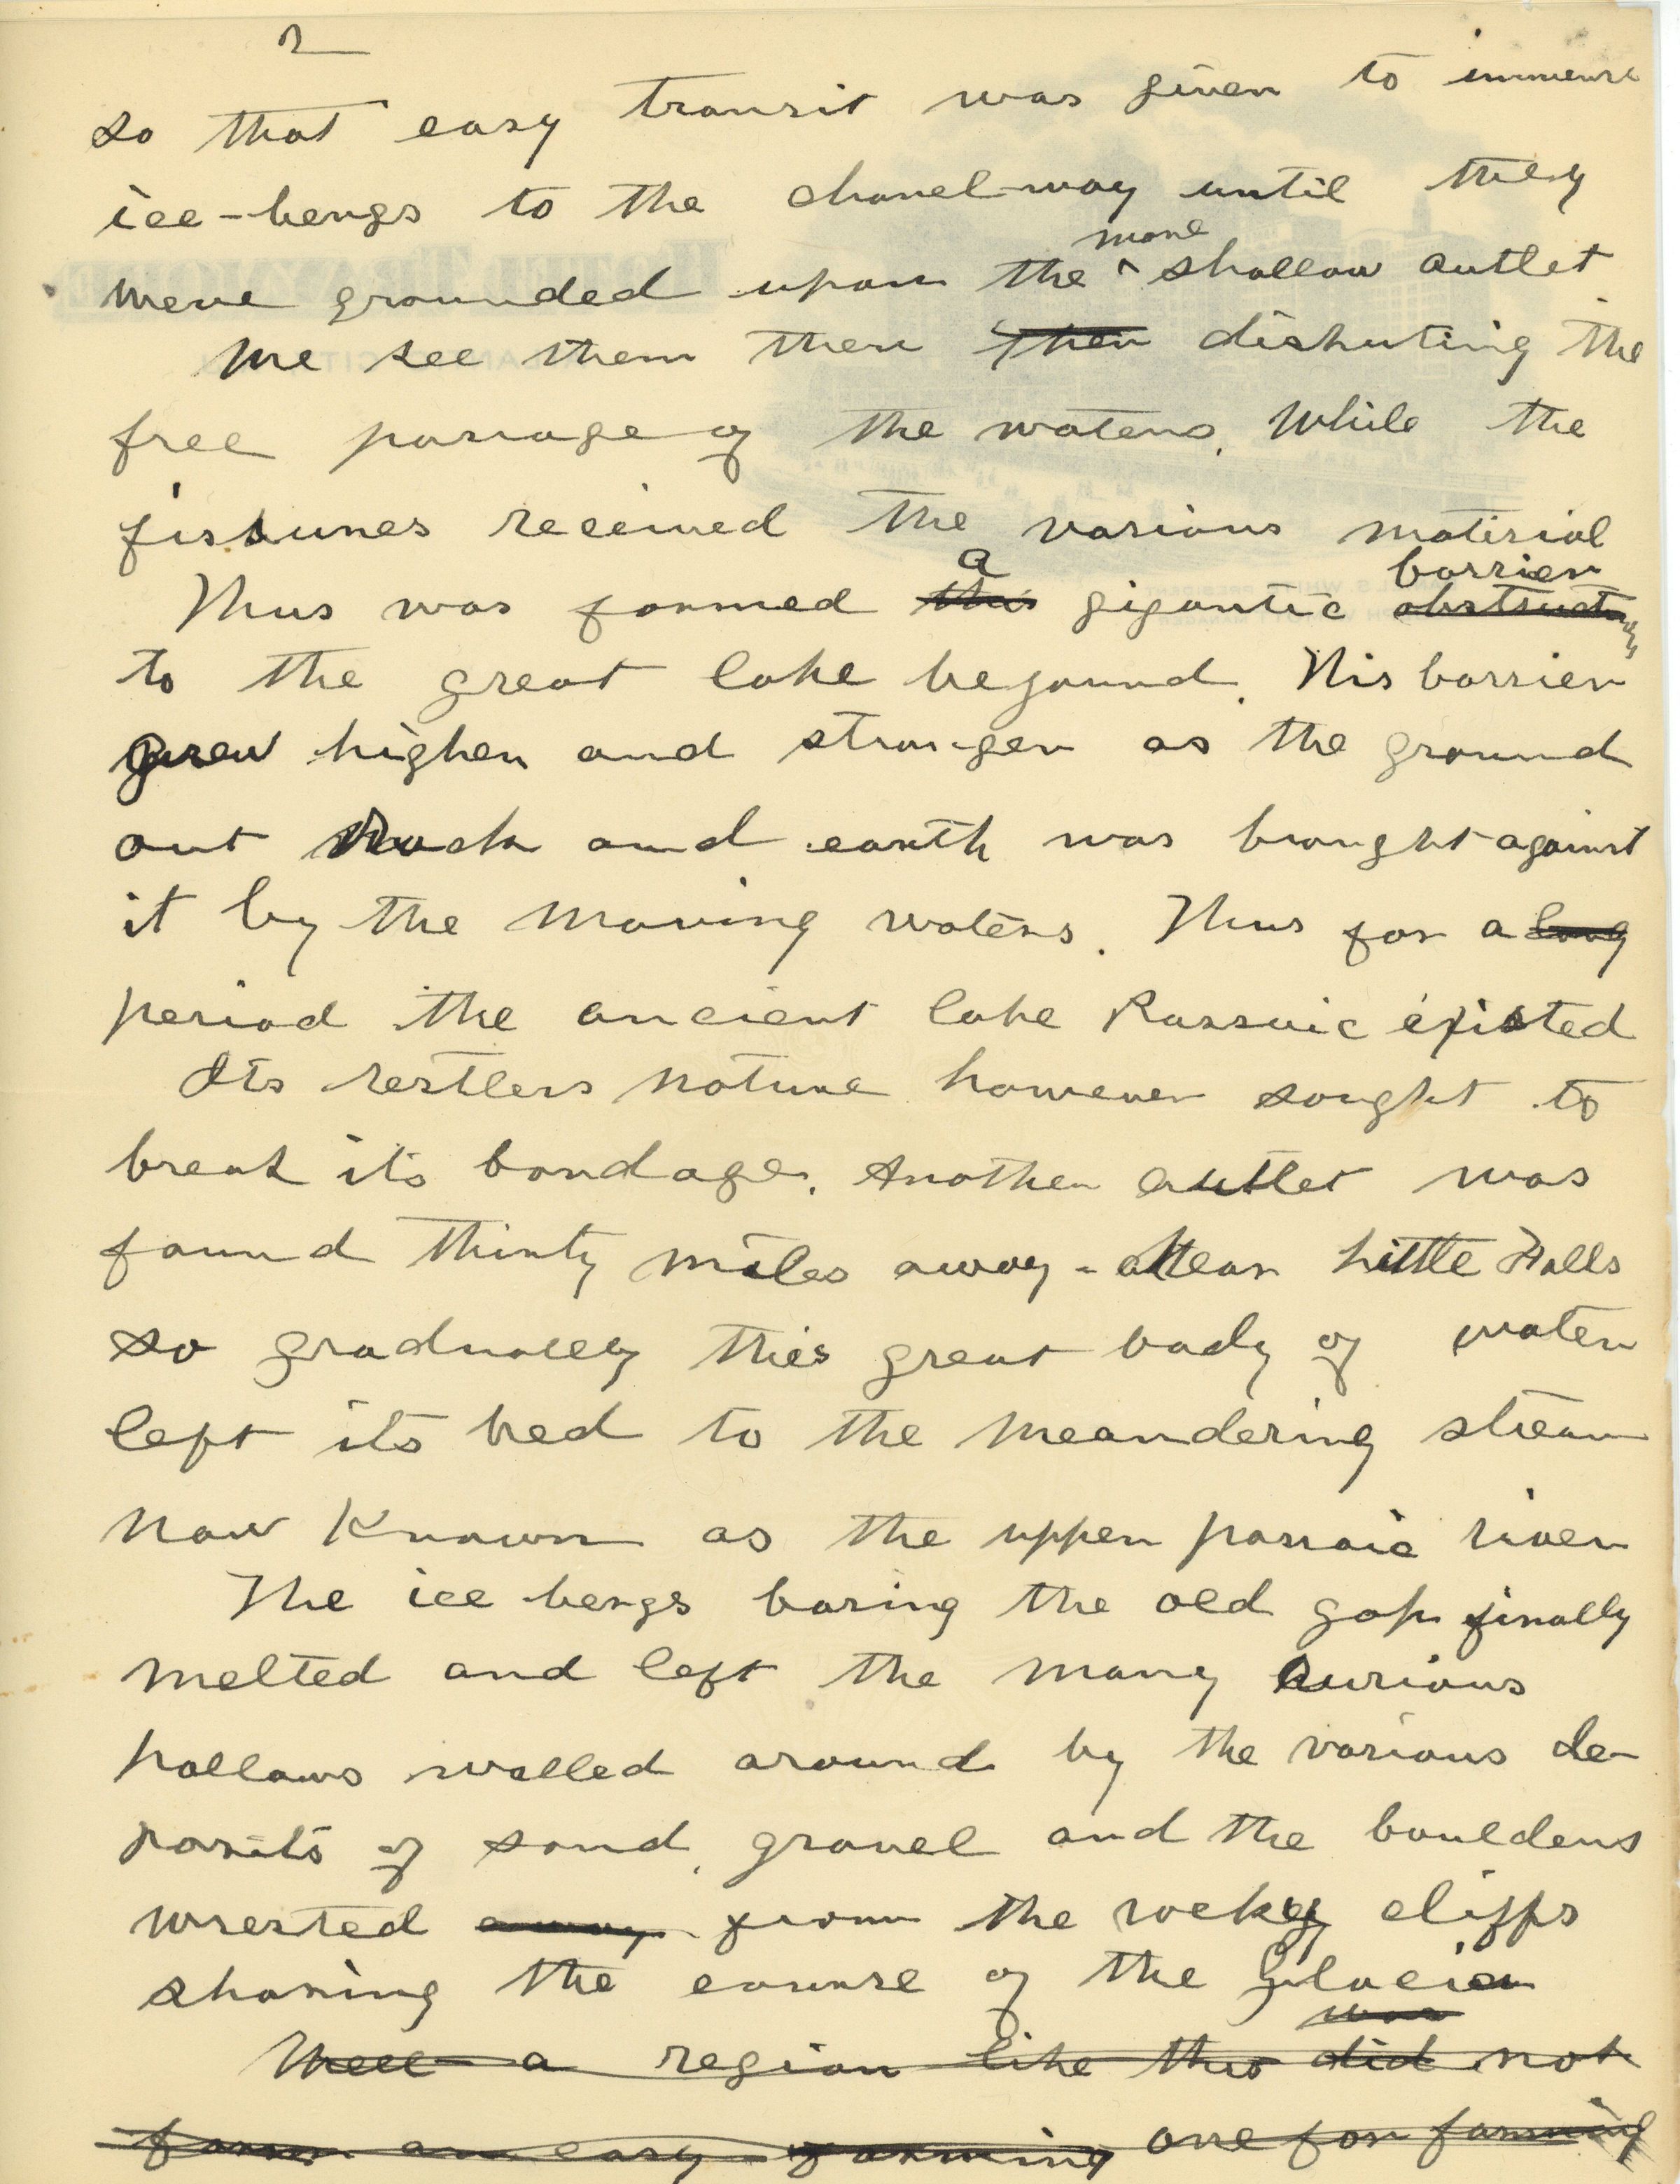 2
so that easy transit was given to immense
ice-bergs to the chanel-way until they
more
were grounded upon the ^ shallow outlet.
We see them then then disputing the
free passage of the waters. While the
fissures received the various matirial
a barrier
Thus was formed this gigantic obstruction
to the great lake beyound. This barrier
grew higher and stronger as the ground
out rock and earth was brought against
it by the moving waters. Thus for a long
period the ancient lake Passaic existed
Its restless nature however sought to
break its bondage. Another outlet was
found thirty miles away - near Little Falls
so gradually this great body of water
left its bed to the meandering stream
now known as the upper passaic river
The ice bergs baring the old gap finally
melted and left the many curious
hollows walled around by the various de-
posits of sand, gravel and the boulders
wrested away from the rocky cliffs
shoring the course of the Glacier
was
Well a region like this did not
form an easy farming one for farming
HOTEL TRAYMORE